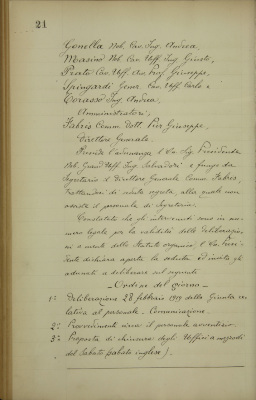 21
Gonella Nob. Cav. Ing. Andrea,
Masino Nob. Cav. Uff. Ing. Giusto,
Prato Cav. Uff. Avv. Prof. Giuseppe,
Spingardi Gener. Cav. Uff. Carlo e
Torasso Ing. Andrea,
Amministratori,
Fabris Comm. Dott. Pier Giuseppe,
Direttore Generale.
Presiede l'adunanza l'Ill. Sig. Presidente
Nob. Grand'Uff. Ing. Salvadori e funge da
Segretario il Direttore Generale Comm. Fabris,
trattandosi di seduta segreta, alla quale non
assiste il personale di Segreteria.
Constatato che gli intervenuti sono in nu-
mero legale per la validità delle deliberazio-
ni a mente dello Statuto organico l'Ill. Presi-
dente dichiara aperta la seduta ed invita gli
adunati a deliberare sul seguente
Ordine del giorno
1º Deliberazione 28 febbraio 1919 della Giunta re-
lativa al personale. Comunicazione.
2º Provvedimenti verso il personale avventizio.
3º Proposta di chiusura degli Uffici a mezzodì
del Sabato (sabato inglese).